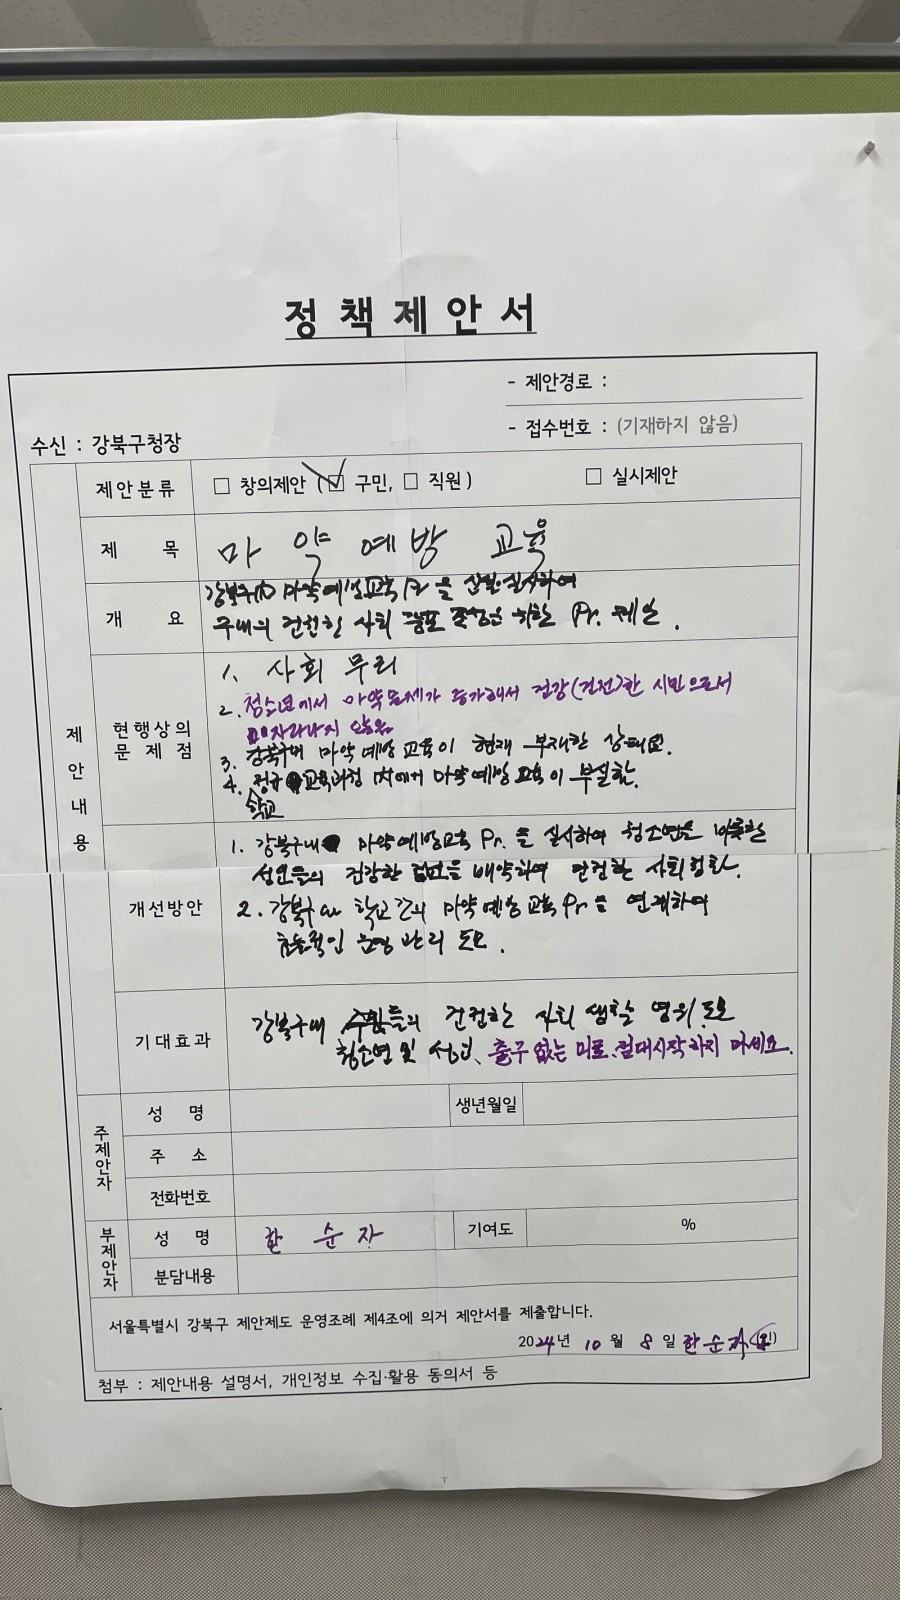 정책제안서
- 제안경로 :
- 접수번호 : (기재하지 않음)
수신 : 강북구청장
제안분류 □ 창의제안 ( ☑ 구민, □ 직원 ) □ 실시제안
제 목 마약예방 교육
개 요 강북구内 마약예방교육 Pr을 실시하여
구내의 건전한 사회 조성을 위한 Pr. 제안.
제안내용
현행상의 문제점
1. 사회 무리
2. 청소년에서 마약문제가 증가해서 건강(건전)한 시민으로서
자라나지 않음
3. 강북구내 마약예방교육이 현재 부재한 상태요.
4. 정규 교육과정 내에서 마약예방교육이 부실함.
학교
개선방안
1. 강북구내 마약예방교육 Pr.을 실시하여 청소년을 비롯한
성인들의 건강한 사회
2. 강북구内 학교간의 마약예방교육 Pr을 연계하여
효율적인 운영관리 도모.
기대효과
강북구내 주민들의 건전한 사회 생활 영위 도모
청소년 및 성인, 출구 없는 미로, 절대시작하지 마세요.
주제안자
성 명 생년월일
주 소
전화번호
부제안자
성 명 한 순 자 기여도 %
분담내용
서울특별시 강북구 제안제도 운영조례 제4조에 의거 제안서를 제출합니다.
2024년 10월 8일 한순자 (인)
첨부 : 제안내용 설명서, 개인정보 수집·활용 동의서 등